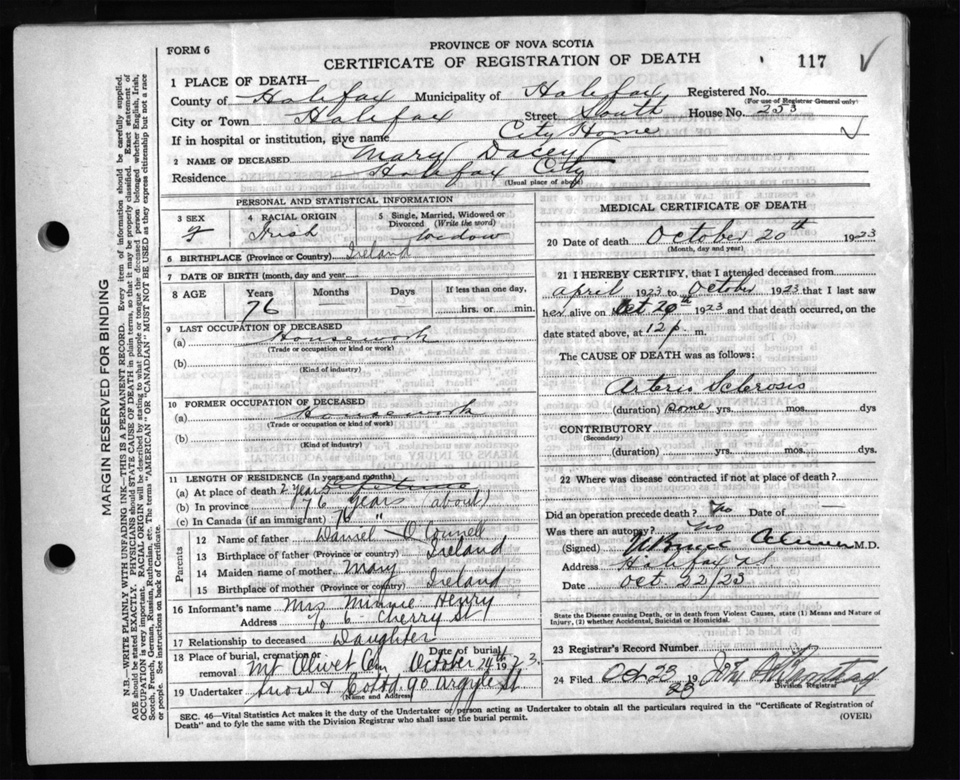 FORM 6
PROVINCE OF NOVA SCOTIA
CERTIFICATE OF REGISTRATION OF DEATH
117
1 PLACE OF DEATH—
County of Halifax Municipality of Halifax Registered No.
(For use of Registrar General only)
City or Town Halifax Street South House No. 253
If in hospital or institution, give name City Home
2 NAME OF DECEASED Mary Dacey
Residence Halifax City
(Usual place of abode)
PERSONAL AND STATISTICAL INFORMATION
3 SEX
f
4 RACIAL ORIGIN
Irish
5 Single, Married, Widowed or Divorced (Write the word)
Widow
6 BIRTHPLACE (Province or Country) Ireland
7 DATE OF BIRTH (month, day and year
8 AGE Years Months Days If less than one day,
76 hrs. or min.
9 LAST OCCUPATION OF DECEASED
(a) Housework
(Trade or occupation or kind or work)
(b)
(Kind of industry)
10 FORMER OCCUPATION OF DECEASED
(a) Housework
(Trade or occupation or kind or work)
(b)
(Kind of industry)
11 LENGTH OF RESIDENCE (In years and months)
(a) At place of death 2 years
(b) In province 76 years (about)
(c) In Canada (if an immigrant) 76 "
Parents
12 Name of father Daniel O'Connell
13 Birthplace of father (Province or country) Ireland
14 Maiden name of mother Mary
15 Birthplace of mother (Province or country) Ireland
16 Informant's name Mrs Minnie Henry
Address % 6 Cherry St
17 Relationship to deceased Daughter
18 Place of burial, cremation or removal Mt Olivet Cem Date of burial October 24th 1923
19 Undertaker Snow & Co Ltd. 90 Argyle St
(Name and Address)
MEDICAL CERTIFICATE OF DEATH
20 Date of death October 20th 1923
(Month, day and year)
21 I HEREBY CERTIFY, that I attended deceased from
April 1923 to October 1923 that I last saw
her alive on Oct 20th 1923 and that death occurred, on the
date stated above, at 12 p. m.
The CAUSE OF DEATH was as follows:
Arterio Sclerosis
(duration) Some yrs. mos. dys
CONTRIBUTORY
(Secondary)
(duration) yrs. mos. dys.
22 Where was disease contracted if not at place of death?
Did an operation precede death? No Date of —
Was there an autopsy? No
(Signed) M.D.
Address Halifax NS
Date Oct 22/23
State the Disease causing Death, or in death from Violent Causes, state (1) Means and Nature of Injury, (2) whether Accidental, Suicidal or Homicidal.
23 Registrar's Record Number
24 Filed Oct 23 19 23
Division Registrar
SEC. 46—Vital Statistics Act makes it the duty of the Undertaker or person acting as Undertaker to obtain all the particulars required in the "Certificate of Registration of
Death" and to fyle the same with the Division Registrar who shall issue the burial permit.
(OVER)
MARGIN RESERVED FOR BINDING
N.B.—WRITE PLAINLY WITH UNFADING INK—THIS IS A PERMANENT RECORD. Every item of information should be carefully supplied.
AGE should be stated EXACTLY. PHYSICIANS should STATE CAUSE OF DEATH in plain terms, so that it may be properly classified. Exact statement of
OCCUPATION is very important. RACIAL ORIGIN will be described by stating to what people or tongue the deceased person belonged whether English, Irish,
Scotch, French, German, Russian, Ruthenian, etc. The terms "AMERICAN OR CANADIAN" MUST NOT BE USED as they express citizenship but not a race
or people. See instructions on back of Certificate.